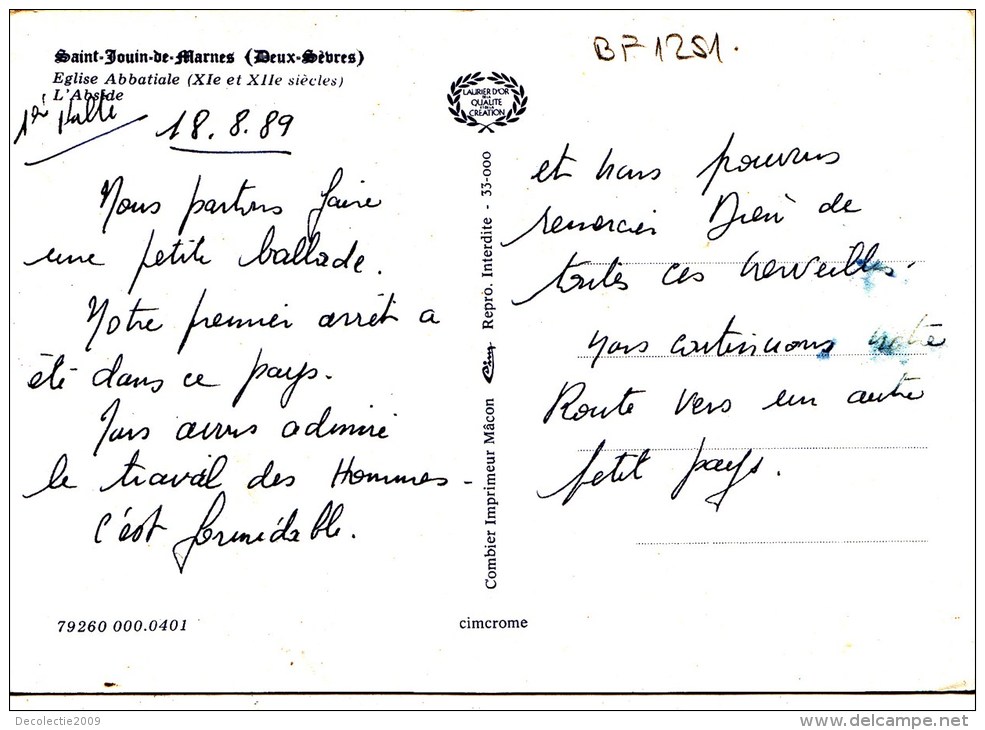 BF 1251.
Saint-Jouin-de-Marnes (Deux-Sèvres)
Eglise Abbatiale (XIe et XIIe siècles)
L'Abside
LAURIER D'OR
DE LA
QUALITE
ET DE LA
CREATION
18.8.89
Nous partons faire
une petite ballade.
Notre premier arrêt a
été dans ce pays.
Nous avons admiré
le travail des Hommes -
C'est formidable.
Combier Imprimeur Mâcon Cim Repro. Interdite - 33-000
et nous pouvons
remercier Dieu de
toutes ces merveilles.
Nous continuons notre
Route vers un autre
petit pays.
79260 000.0401
cimcrome
Decolectie2009
www.delcampe.net